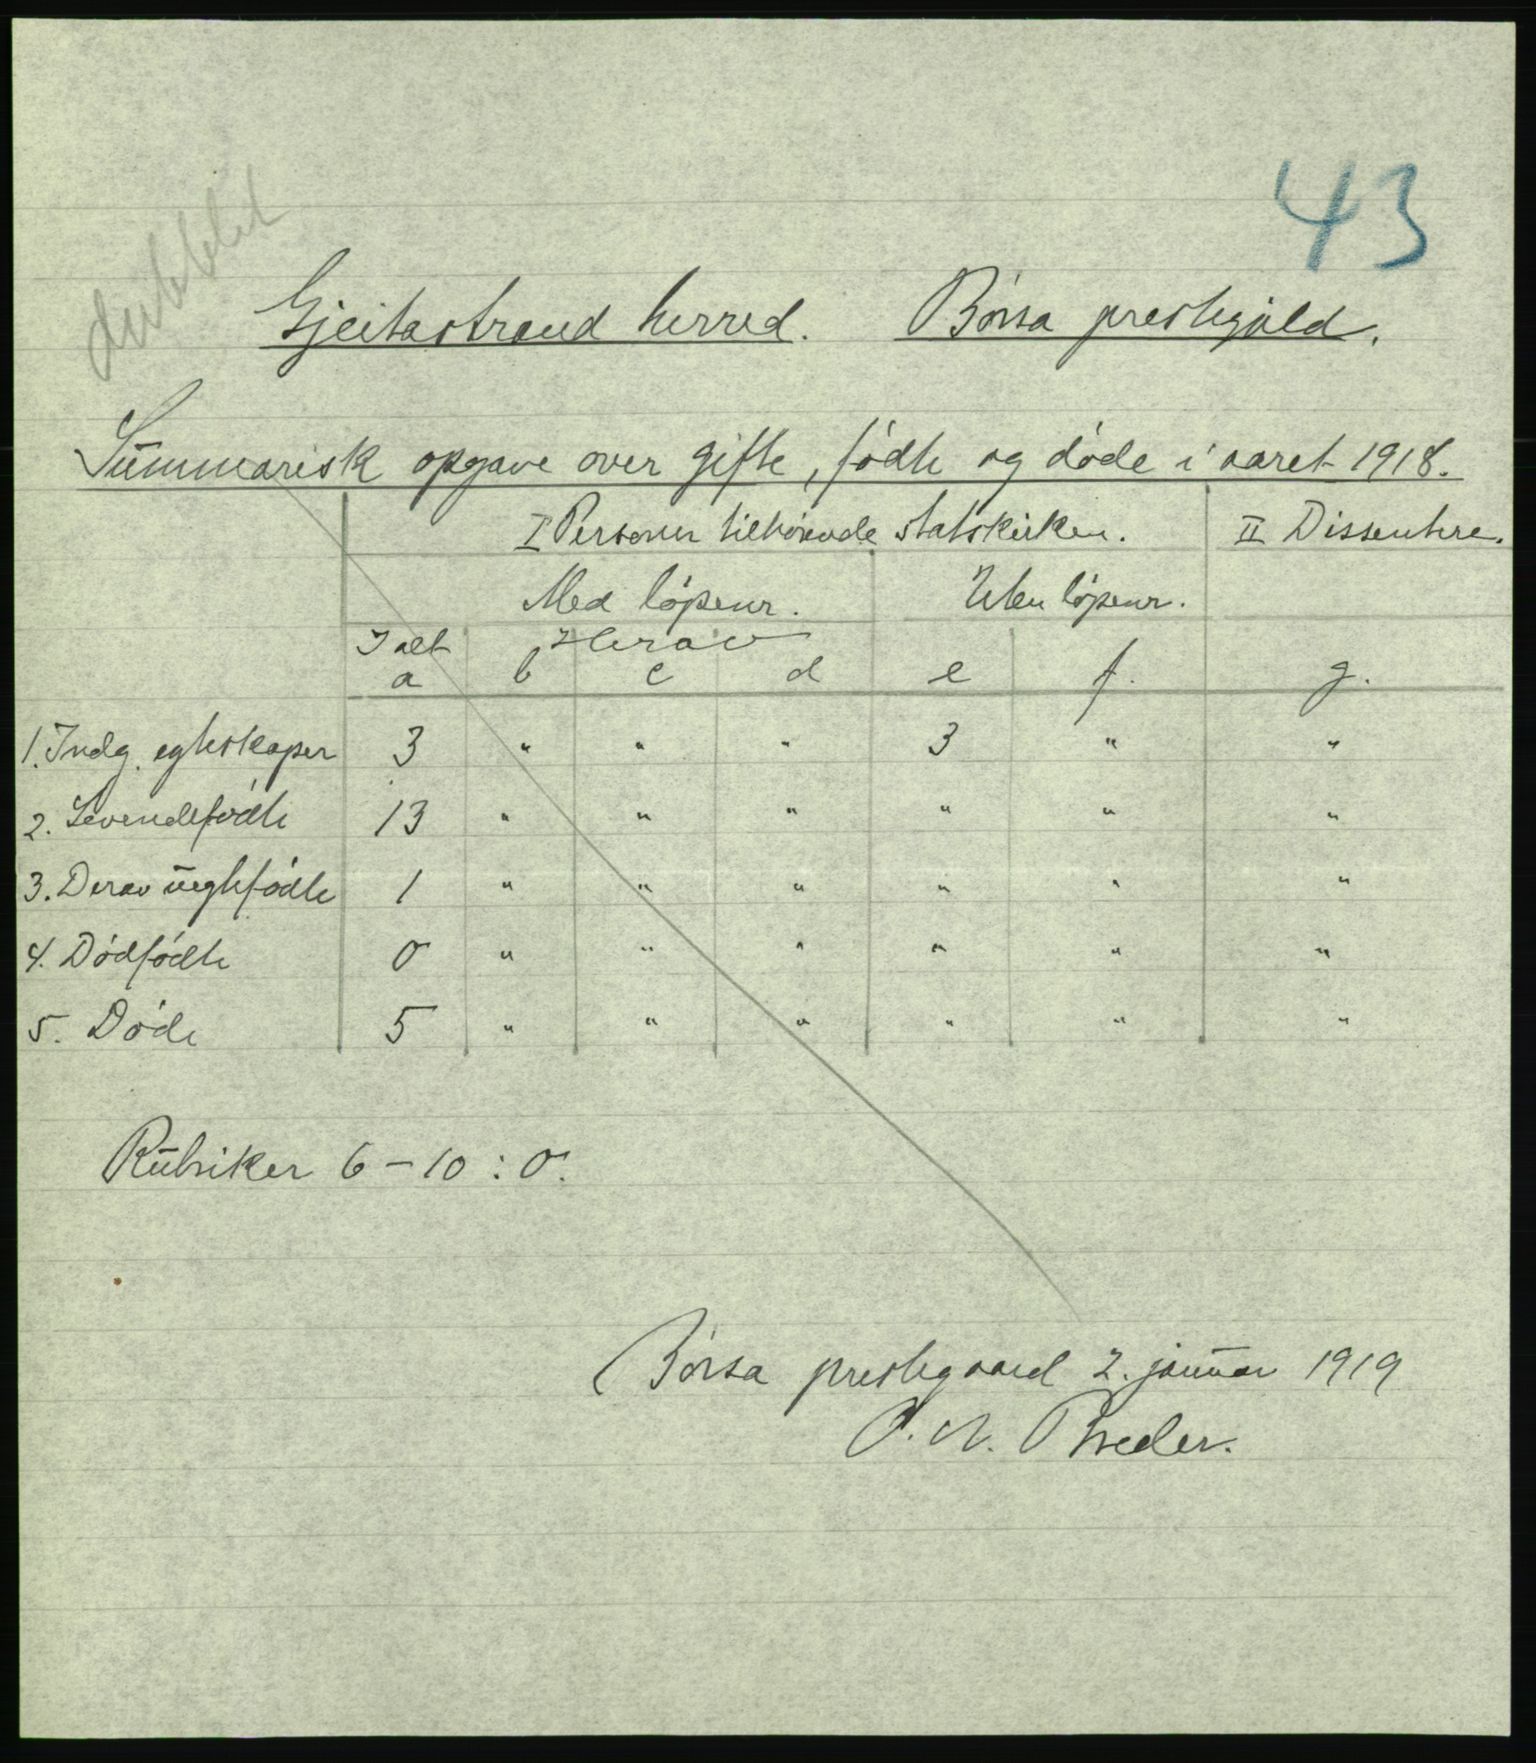 43
dubblet
Gjeitastrand herred. Börsa prestegjæld.
Summarisk opgave over gifte, fødte og døde i aaret 1918.
I Personer tilhørende statskirken. II Dissentere.
Med løpenr. Uten løpenr.
I alt Herav
a b c d e f. g.
1. Indg. egteskaper 3 " " " 3 " "
2. Levendefødte 13 " " " " " "
3. Derav uegtefødte 1 " " " " " "
4. Dødfødte 0 " " " " " "
5. Døde 5 " " " " " "
Rubriker 6-10 : 0.
Börsa prestegaard 2. januar 1919